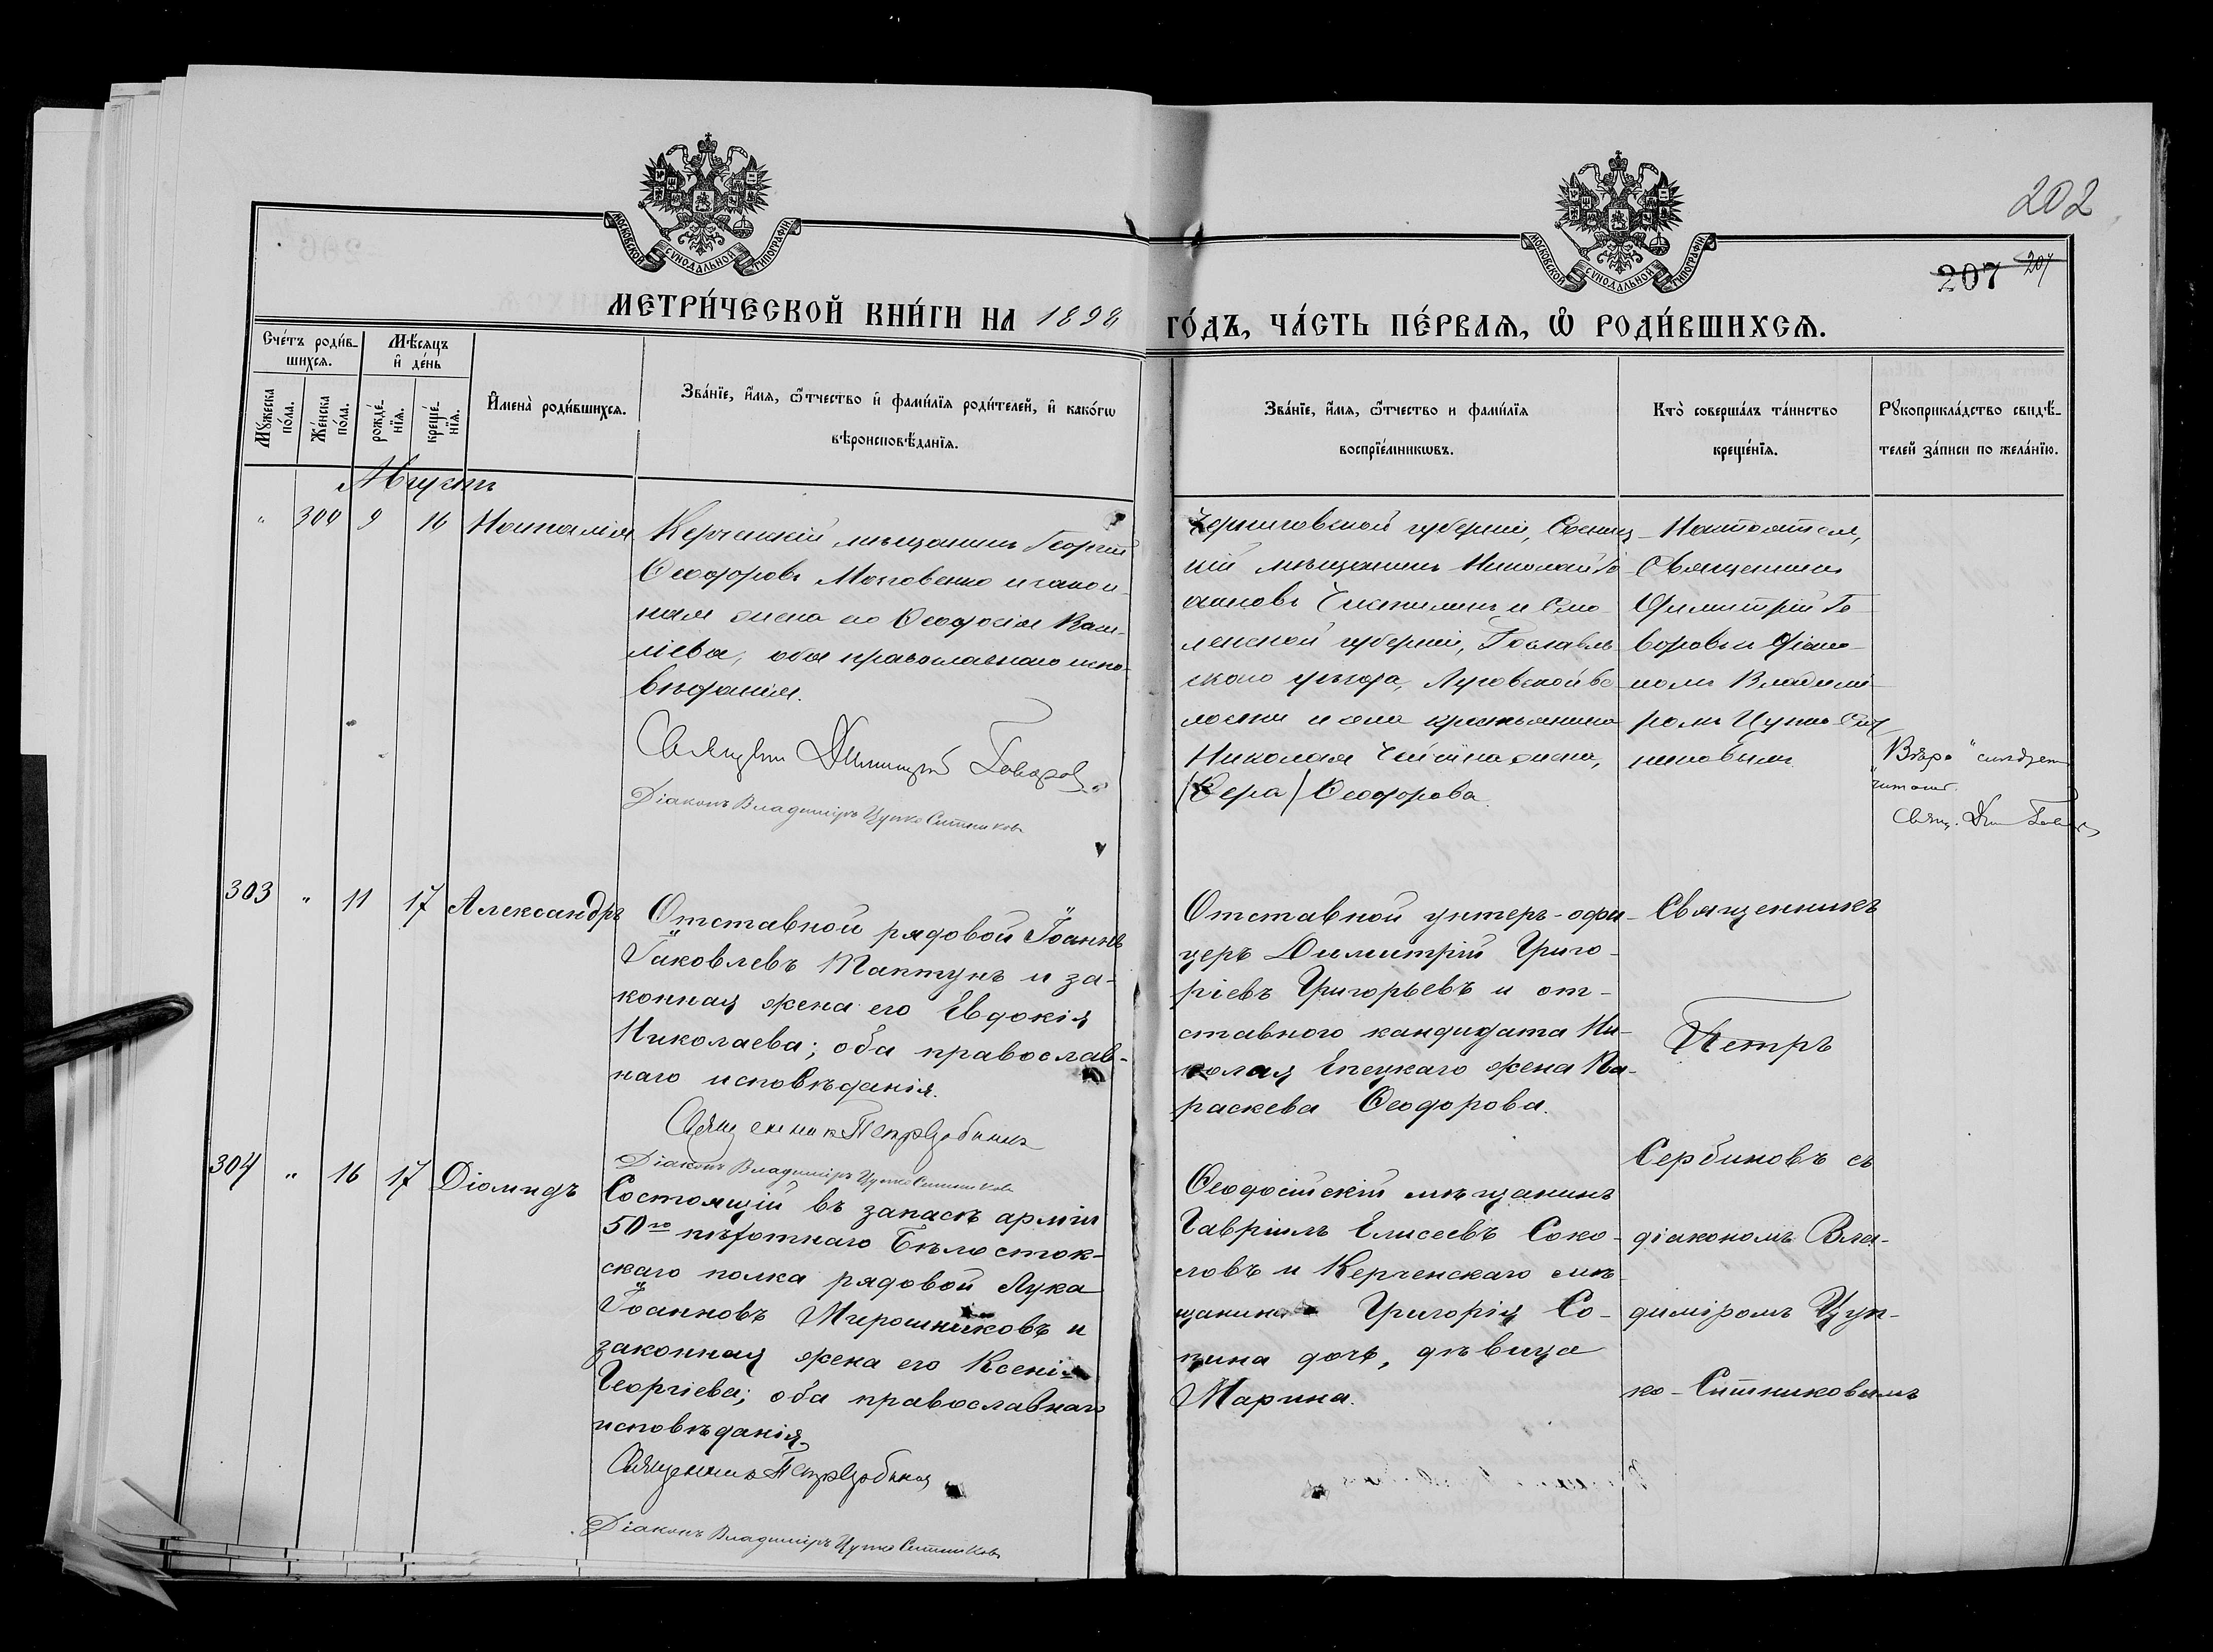 202
207 207
МОСКОВСКОЙ СѴНОДАЛЬНОЙ ТИПОГРАФІИ
МОСКОВСКОЙ СѴНОДАЛЬНОЙ ТИПОГРАФІИ
МЕТРИ́ЧЕСКОЙ КНИ́ГИ НА 1898
ГО́ДЪ, ЧА́СТЬ ПЕ́РВАѦ, Ѡ҆ РОДИ́ВШИХСѦ.
Сче́тъ роди́в-
шихсѧ.
Мѣ́сѧцъ
и҆ де́нь
Мꙋ́жеска
по́ла.
Же́нска
по́ла.
рожде́-
нїѧ.
креще́-
нїѧ.
И҆мена̀ роди́вшихсѧ.
Зва́нїе, и҆́мѧ, ѻ҆́тчество и҆ фами́лїѧ роди́телей, и҆ како́гѡ
вѣроисповѣ́данїѧ.
Зва́нїе, и҆́мѧ, ѻ҆́тчество и фами́лїѧ
воспрїе́мникѡвъ.
Кто̀ соверша́лъ та́инство
креще́нїѧ.
Рꙋкоприкла́дство свидѣ́-
телей за́писи по жела́нїю.
Августъ
" 300 9 16 Наталія
Керченскій мѣщанинъ Георгій
Ѳеодоровъ Мо
и закон-
ная жена его Ѳеодосія Васи-
ліева, оба православнаго испо-
вѣданія.
Священ Димитрій Говоров
Діаконъ Владиміръ Цупко Ситниковъ
Черниговской губерніи, Сосниц-
кій мѣщанинъ Николай Іо-
анновъ и Смо-
ленской губерніи, Рославль-
скаго уѣзда, Луговской во-
лости и села крестьянина
Николая жена,
(Вера) Ѳеодорова.
Настоятель,
Священникъ
Димитрій Го-
воровъ и Діако-
номъ Владими-
ромъ Цупко-Сит-
никовымъ.
"Вѣра" слѣдуетъ
читать.
Свящ. Дим Говоров
303 " 11 17 Александръ
Отставной рядовой Іоаннъ
Іаковлевъ Таптунъ и за-
конная жена его Евдокія
Николаева; оба православ-
наго исповѣданія.
Священник Петръ Сербинов
Діаконъ Владиміръ Цупко Ситниковъ
Отставной унтеръ-офи-
церъ Димитрій Григо-
ріевъ Григорьевъ и от-
ставного кандидата Ни-
колая Елецкаго жена Па-
раскева Ѳеодорова.
Священникъ
Петръ
Сербиновъ съ
діакономъ Вла-
диміромъ Цуп-
ко-Ситниковымъ
304 " 16 17 Діомидъ
Состоящій въ запасѣ арміи
50го пѣхотнаго Бѣлосток-
скаго полка рядовой Лука
Іоанновъ Мирошниковъ и
законная жена его Ксенія
Георгіева; оба православнаго
исповѣданія.
Священникъ Петръ Сербинов
Діаконъ Владиміръ Цупко Ситниковъ
Ѳеодосійскій мѣщанинъ
Гавріилъ Елисеевъ Соко-
ловъ и Керченскаго мѣ-
щанина Григорія Со-
пина дочь, дѣвица
Марина.